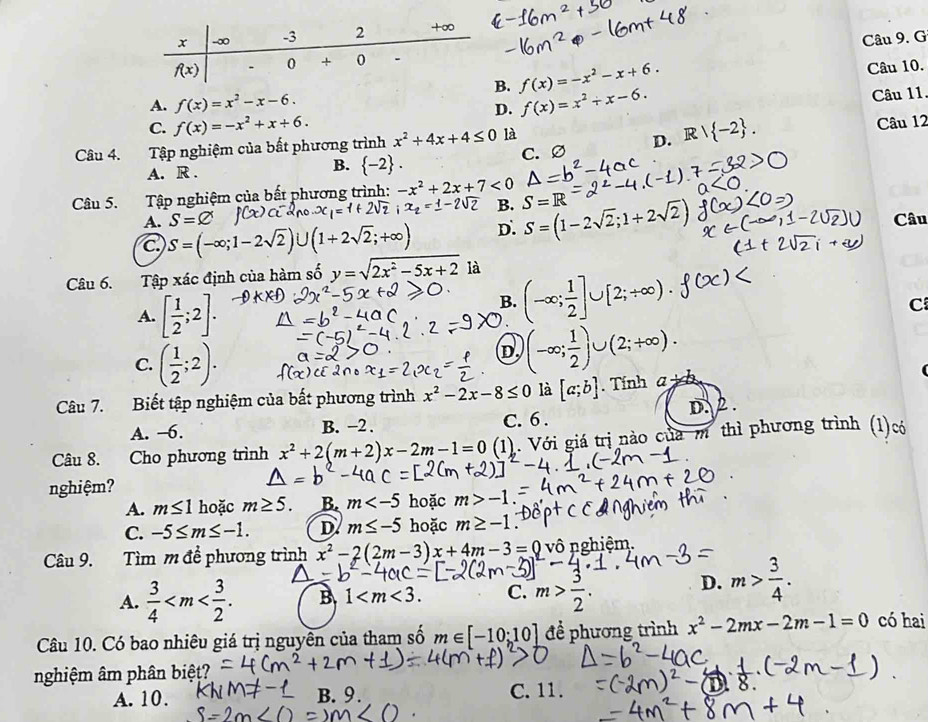 x -∞ -3 2 +∞
f(x) - 0 + 0 -
-16m² - 16m + 48
Câu 9. G
Câu 10.
A. f(x) = x² - x - 6. B. f(x) = -x² - x + 6.
Câu 11.
C. f(x) = -x² + x + 6. D. f(x) = x² + x - 6.
Câu 12
Câu 4. Tập nghiệm của bất phương trình x² + 4x + 4 ≤ 0 là
A. ℝ. B. {-2}. C. ∅ D. ℝ\{-2}.
Câu 5. Tập nghiệm của bất phương trình: -x² + 2x + 7 < 0 Δ = b² - 4ac
= 2² - 4.(-1).7 = 32 > 0
a < 0
A. S = ∅ f(x) có 2 no x₁ = 1 + 2√2 ; x₂ = 1 - 2√2 B. S = ℝ
f(x) < 0 =>
C. S = (-∞; 1 - 2√2) ∪ (1 + 2√2; +∞) D. S = (1 - 2√2; 1 + 2√2)
x ∈ (-∞; 1 - 2√2) ∪
(1 + 2√2; +∞)
Câu
Câu 6. Tập xác định của hàm số y = √(2x² - 5x + 2) là
ĐKXĐ: 2x² - 5x + 2 ≥ 0.
A. [1/2; 2]. B. (-∞; 1/2] ∪ [2; +∞). f(x) <
Δ = b² - 4ac
= (-5)² - 4.2.2 = 9 > 0.
a = 2 > 0
C. (1/2; 2). D. (-∞; 1/2) ∪ (2; +∞).
f(x) có 2 no x₁ = 2; x₂ = 1/2
Câu 7. Biết tập nghiệm của bất phương trình x² - 2x - 8 ≤ 0 là [a; b]. Tính a + b.
A. -6. B. -2. C. 6. D. 2.
Câu 8. Cho phương trình x² + 2(m + 2)x - 2m - 1 = 0 (1). Với giá trị nào của m thì phương trình (1) có
nghiệm?
Δ = b² - 4ac = [2(m+2)]² - 4.1.(-2m - 1
= 4m² + 24m + 20
A. m ≤ 1 hoặc m ≥ 5. B. m < -5 hoặc m > -1.
C. -5 ≤ m ≤ -1. D. m ≤ -5 hoặc m ≥ -1.
nghiệm thì
Câu 9. Tìm m để phương trình x² - 2(2m - 3)x + 4m - 3 = 0 vô nghiệm.
Δ = b² - 4ac = [-2(2m-3)]² - 4.1.4m - 3 =
A. 3/4 < m < 3/2. B. 1 < m < 3. C. m > 3/2. D. m > 3/4.
Câu 10. Có bao nhiêu giá trị nguyên của tham số m ∈ [-10;10] để phương trình x² - 2mx - 2m - 1 = 0 có hai
nghiệm âm phân biệt? = 4(m² + 2m + 1) = 4(m + 1)² > 0 Δ = b² - 4ac
A. 10. khi m ≠ -1 B. 9. C. 11. D. 8.
= (-2m)² - 4.1.(-2m - 1)
S = 2m < 0 => m < 0.
= 4m² + 8m + 4